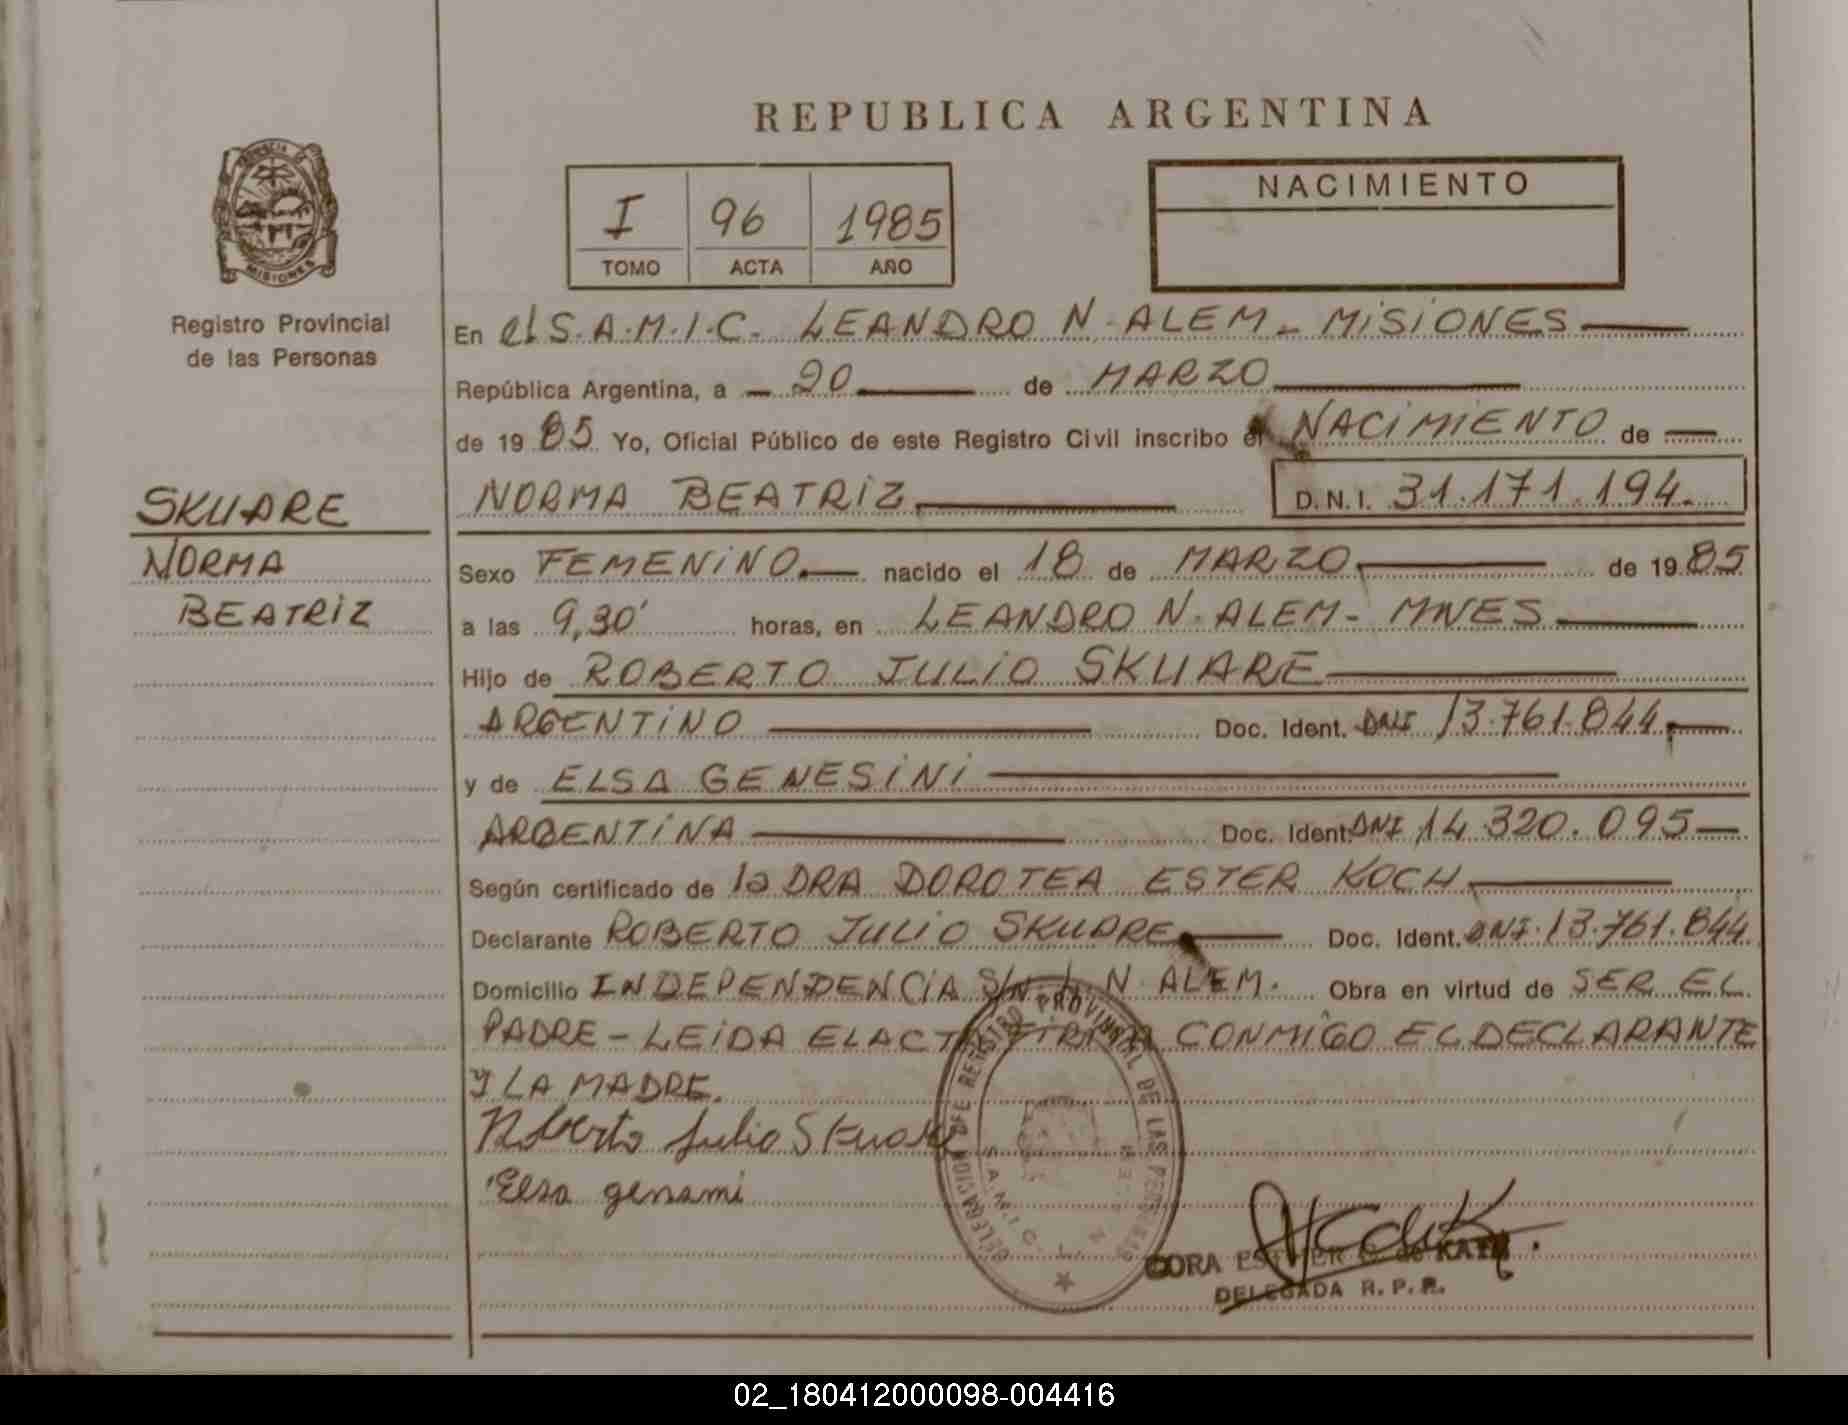 REPUBLICA ARGENTINA
PROVINCIA DE
MISIONES
Registro Provincial
de las Personas
I 96 1985
TOMO ACTA AÑO
NACIMIENTO
En el S.A.M.I.C. LEANDRO N. ALEM - MISIONES
República Argentina, a 20 de MARZO
de 1985 Yo, Oficial Público de este Registro Civil inscribo el NACIMIENTO de
NORMA BEATRIZ D.N.I. 31.171.194.
SKUARE
NORMA
BEATRIZ
Sexo FEMENINO nacido el 18 de MARZO de 1985
a las 9,30' horas, en LEANDRO N. ALEM - MNES
Hijo de ROBERTO JULIO SKUARE
ARGENTINO Doc. Ident. DNI 13.761.844
y de ELSA GENESINI
ARGENTINA Doc. Ident. DNI 14.320.095
Según certificado de la DRA DOROTEA ESTER KOCH
Declarante ROBERTO JULIO SKUARE Doc. Ident. DNI. 13.761.844
Domicilio INDEPENDENCIA S/N L. N ALEM. Obra en virtud de SER EL
PADRE - LEIDA EL ACTA FIRMA CONMIGO EL DECLARANTE
Y LA MADRE.
Roberto Julio Skuare
Elsa genesini
DELEGACION DE REGISTRO PROVINCIAL DE LAS PERSONAS
CORA ESTHER de KATZ
DELEGADA R.P.P.
02_180412000098-004416